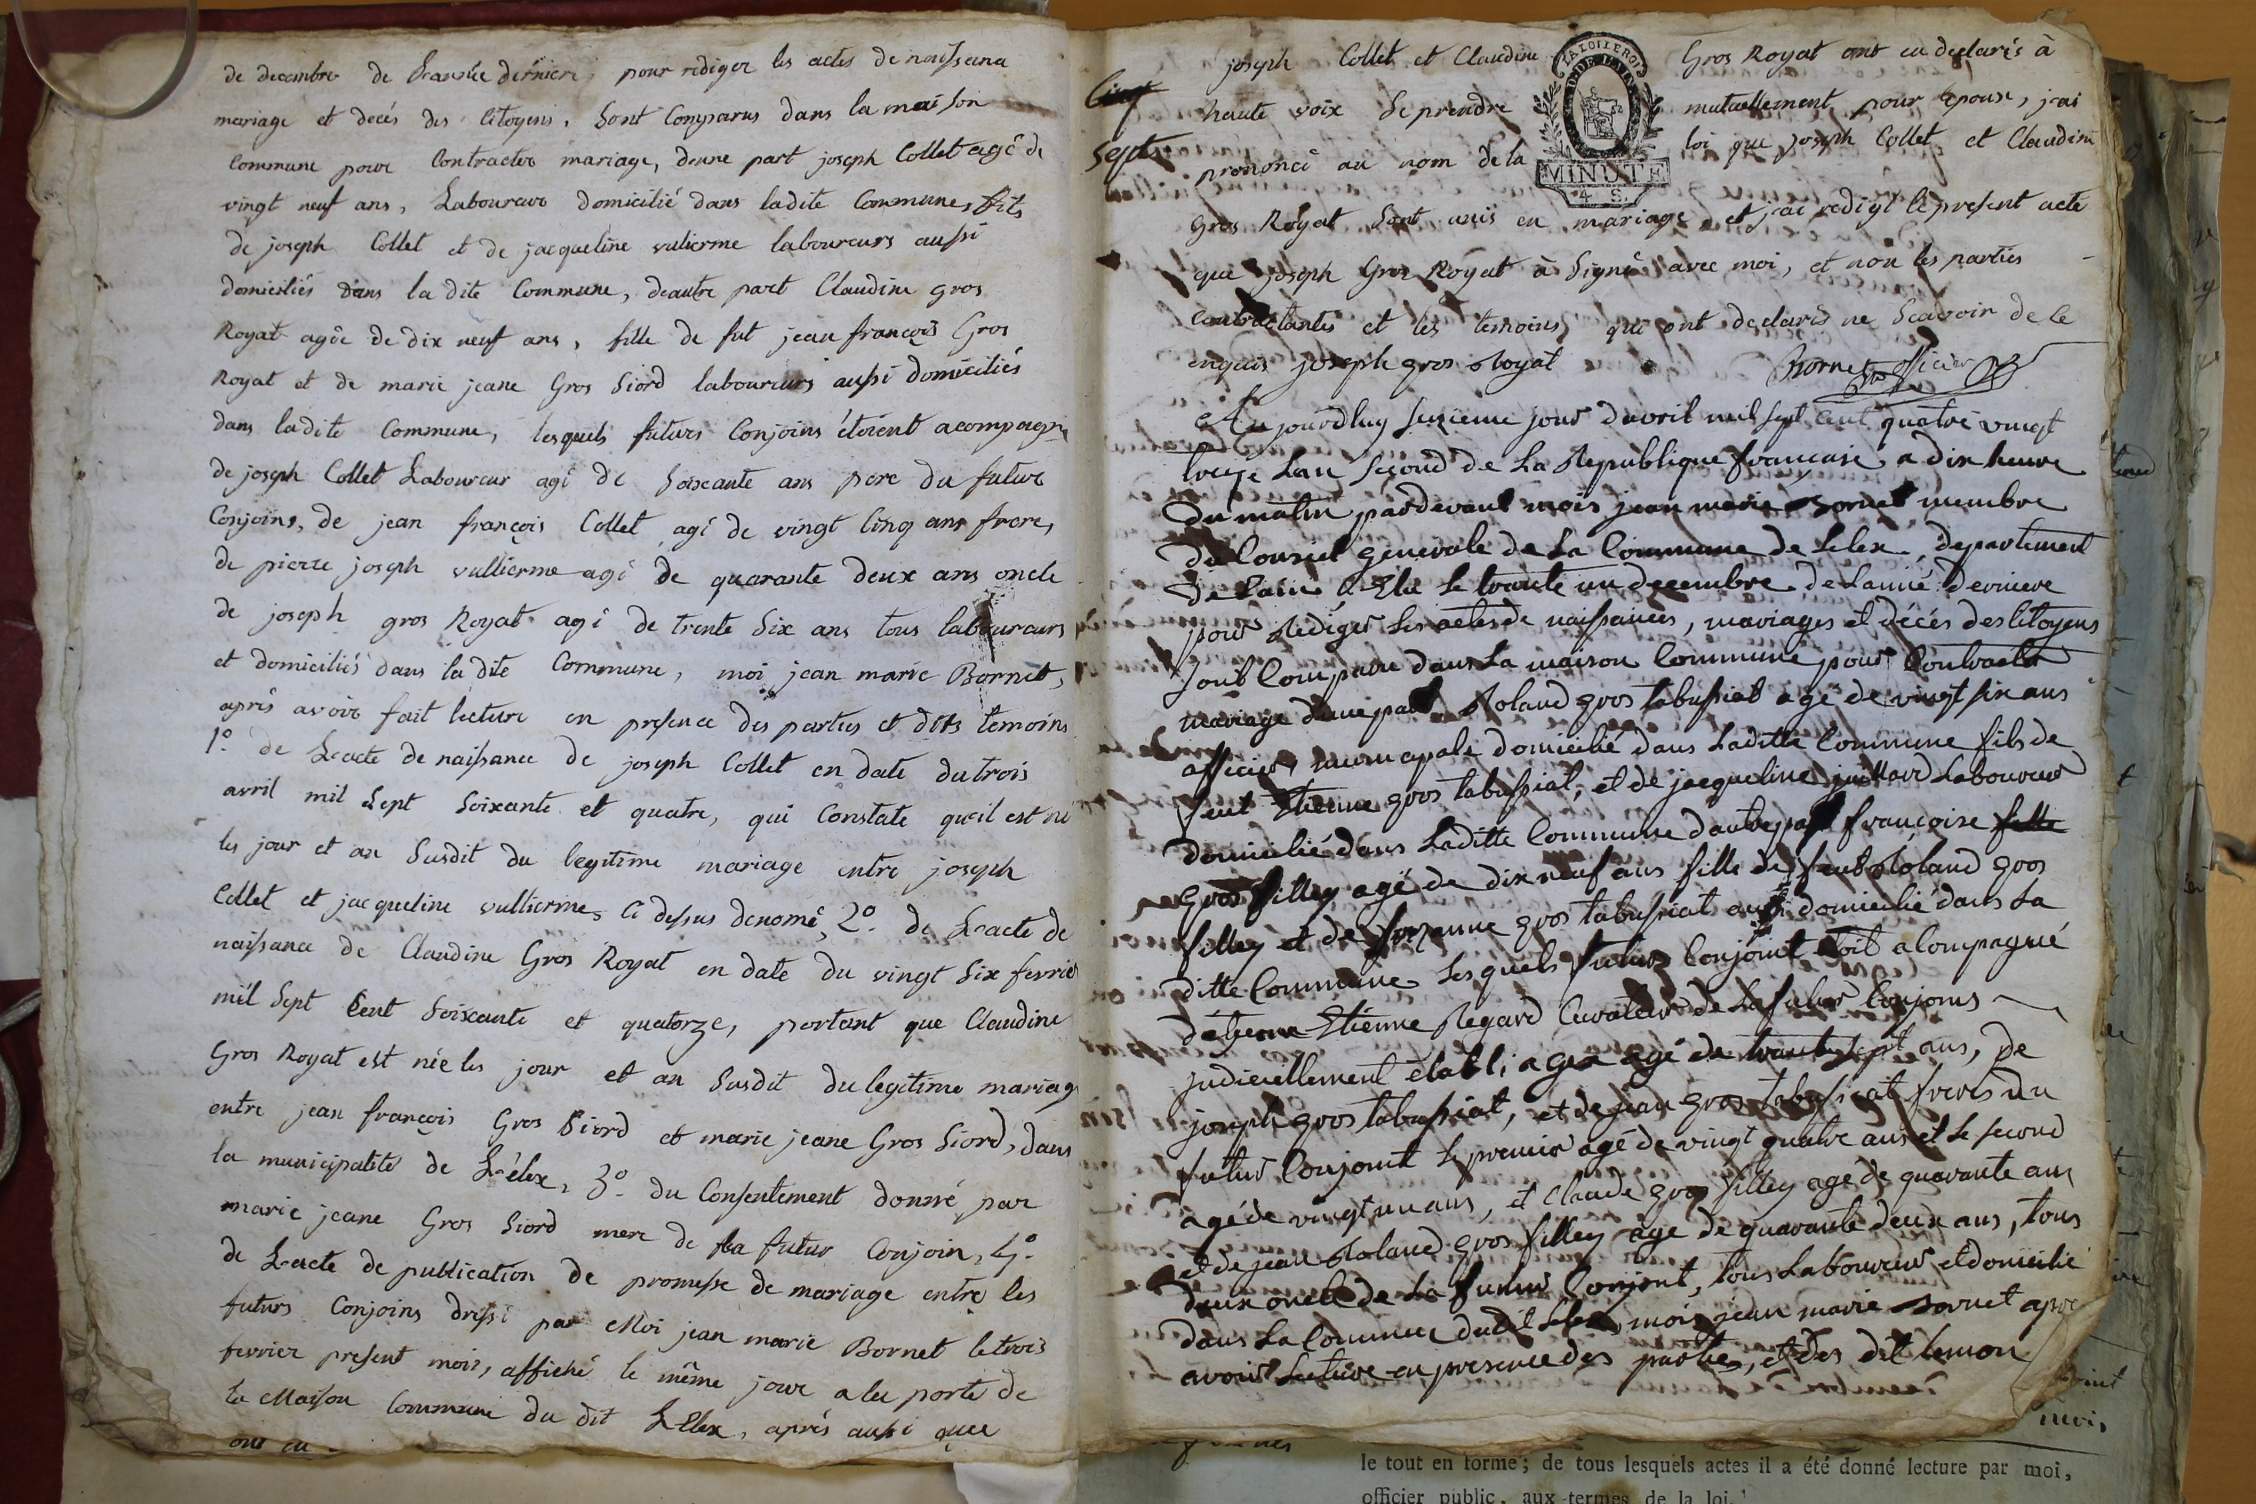 de decembre de L'année derniere, pour rediger les actes de naissance
mariage et decés des Citoyens, Sont Comparus dans la maison
Commune pour Contracter mariage, d'une part joseph Collet agé de
vingt neuf ans, Laboureur domicilié dans ladite Commune, fils
de joseph Collet et de jacqueline vulierme laboureurs aussi
domiciliés dans la dite Commune, d'autre part Claudine gros
Royat agée de dix neuf ans, fille de fut jean françois Gros
Royat et de marie jeane Gros Siord laboureurs aussi domiciliés
dans ladite Commune, lesquels futurs Conjoins étoient acompagné
de joseph Collet Laboureur agé de soixante ans pere du futur
Conjoins, de jean françois Collet agé de vingt Cinq ans frere,
de pierre joseph vullierme agé de quarante deux ans oncle
de joseph gros Royat agé de trente Six ans tous laboureurs
et domiciliés dans la dite Commune, moi jean marie Bornet,
aprés avoir fait lecture en presence des parties et dits temoins
1.° de L'acte de naissance de joseph Collet en date du trois
avril mil Sept Soixante et quatre, qui Constate qu'il est né
les jour et an Susdit du legitime mariage entre joseph
Collet et jacqueline vullierme, Ci dessus denomé, 2.° de L'acte de
naissance de Claudine Gros Royat en date du vingt Six fevrier
mil Sept Cent Soixante et quatorze, portant que Claudine
Gros Royat est née les jour et an Susdit du legitime mariage
entre jean françois Gros Siord et marie jeane Gros Siord, dans
la municipalité de L'élex, 3.° du Consentement donné par
marie jeane Gros Siord mere de la futur Conjoin, 4.°
de L'acte de publication de promesse de mariage entre les
futurs Conjoins dressé par Moi jean marie Bornet le trois
fevrier present mois, affiché le même jour a la porte de
la Maison Commune du dit LElex, aprés aussi que
joseph Collet et Claudine Gros Royat ont eu declarés à
Cinq
haute voix Se prendre mutuellement pour epoux, j'ai
Sept
prononcé au nom de la loi que joseph Collet et Claudine
LA LOI LE ROI
MINUTE
4. S.
Gros Royat Sont unis en mariage et j'ai redigé le present acte
que joseph Gros Royat à Signé avec moi, et non les parties
contractantes et les temoins qui ont declarés ne Scavoir de ce
enquis joseph gros Royat Bornet officier
Aujourdhuy seizieme jour d'avril mil sept cent quatre vingt
treize Lan second de La Republique francaise a dix heure
Du matin pardevant mois jean marie Bornet membre
du Conseil generale de La Commune de Lelex, departement
de Lain Elu Le trante un decembre de Lannée derniere
pour Rediger Les actes de naissances, mariages et décés des Citoyens
sont Comparu dans La maison Commune pour Contracter
mariage d'une part Roland gros tabussiat agé de vingt six ans
officier municapale domicilié dans Laditte Commune fils de
feut Etienne gros tabussiat, et de jacqueline juillard Laboureur
domicilié dans Laditte Commune dautre part francoise fille
gros filley agé de dix neuf ans fille de feut Roland gros
filley et de suzanne gros tabussiat aussi domicilié dans La
ditte Commune Lesquels futurs Conjoint étoit a Compagnié
Etienne Regard Curateur de La futur Conjoins
judiciellement établi agé de trante sept ans, de
joseph gros tabussiat, et de jean gros tabussiat freres du
futur Conjoint Le premier agé de vingt quatre ans et Le second
agé de vingt un ans, et Claude gros filley agé de quarante ans
et de jean Roland gros filley agé de quarante deux ans, tous
deux oncle de La futur Conjont, tous Laboureur et domicilié
dans La Commune dudit Lelex, mois jean marie Bornet apre
avoir Lecture en presence des parties, et des dit temon
le tout en forme ; de tous lesquels actes il a été donné lecture par moi,
officier public, aux termes de la loi.